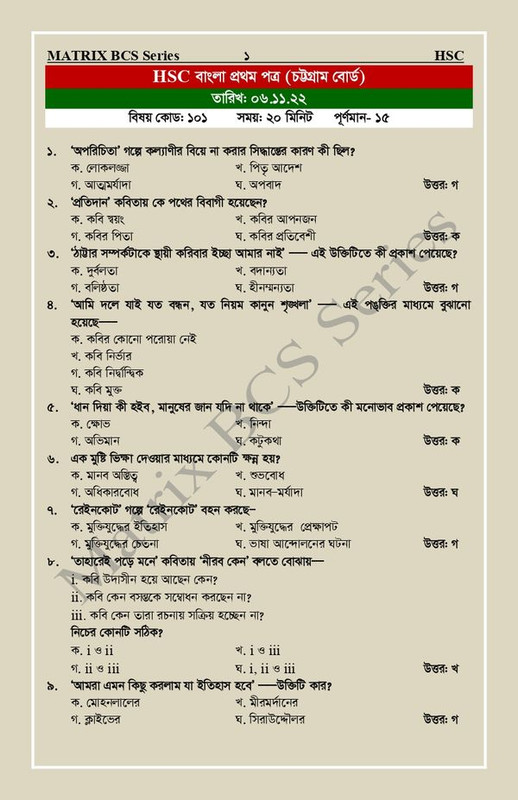 MATRIX BCS Series ১ HSC
HSC বাংলা প্রথম পত্র (চট্টগ্রাম বোর্ড)
তারিখ: ০৬.১১.২২
বিষয় কোড: ১০১ সময়: ২০ মিনিট পূর্ণমান- ১৫
১. ‘অপরিচিতা’ গল্পে কল্যাণীর বিয়ে না করার সিদ্ধান্তের কারণ কী ছিল?
ক. লোকলজ্জা খ. পিতৃ আদেশ
গ. আত্মমর্যাদা ঘ. অপবাদ উত্তর: গ
২. ‘প্রতিদান’ কবিতায় কে পথের বিবাগী হয়েছেন?
ক. কবি স্বয়ং খ. কবির আপনজন
গ. কবির পিতা ঘ. কবির প্রতিবেশী উত্তর: ক
৩. ‘ঠাট্টার সম্পর্কটাকে স্থায়ী করিবার ইচ্ছা আমার নাই’ — এই উক্তিটিতে কী প্রকাশ পেয়েছে?
ক. দুর্বলতা খ. বদান্যতা
গ. বলিষ্ঠতা ঘ. হীনম্মন্যতা উত্তর: গ
৪. ‘আমি দলে যাই যত বন্ধন, যত নিয়ম কানুন শৃঙ্খলা’ — এই পঙ্ক্তির মাধ্যমে বুঝানো
হয়েছে—
ক. কবির কোনো পরোয়া নেই
খ. কবি নির্ভার
গ. কবি নির্দ্বান্দ্বিক
ঘ. কবি মুক্ত উত্তর: ক
৫. ‘ধান দিয়া কী হইব, মানুষের জান যদি না থাকে’ —উক্তিটিতে কী মনোভাব প্রকাশ পেয়েছে?
ক. ক্ষোভ খ. নিন্দা
গ. অভিমান ঘ. কটুকথা উত্তর: ক
৬. এক মুষ্টি ভিক্ষা দেওয়ার মাধ্যমে কোনটি ক্ষুন্ন হয়?
ক. মানব অস্তিত্ব খ. শুভবোধ
গ. অধিকারবোধ ঘ. মানব-মর্যাদা উত্তর: ঘ
৭. ‘রেইনকোট’ গল্পে ‘রেইনকোট’ বহন করছে-
ক. মুক্তিযুদ্ধের ইতিহাস খ. মুক্তিযুদ্ধের প্রেক্ষাপট
গ. মুক্তিযুদ্ধের চেতনা ঘ. ভাষা আন্দোলনের ঘটনা উত্তর: গ
৮. ‘তাহারেই পড়ে মনে’ কবিতায় ‘নীরব কেন’ বলতে বোঝায়—
i. কবি উদাসীন হয়ে আছেন কেন?
ii. কবি কেন বসন্তকে সম্বোধন করছেন না?
iii. কবি কেন তারা রচনায় সক্রিয় হচ্ছেন না?
নিচের কোনটি সঠিক?
ক. i ও ii খ. i ও iii
গ. ii ও iii ঘ. i, ii ও iii উত্তর: খ
৯. ‘আমরা এমন কিছু করলাম যা ইতিহাস হবে’ —উক্তিটি কার?
ক. মোহনলালের খ. মীরমর্দানের
গ. ক্লাইভের ঘ. সিরাউদ্দৌলর উত্তর: গ
Matrix BCS Series